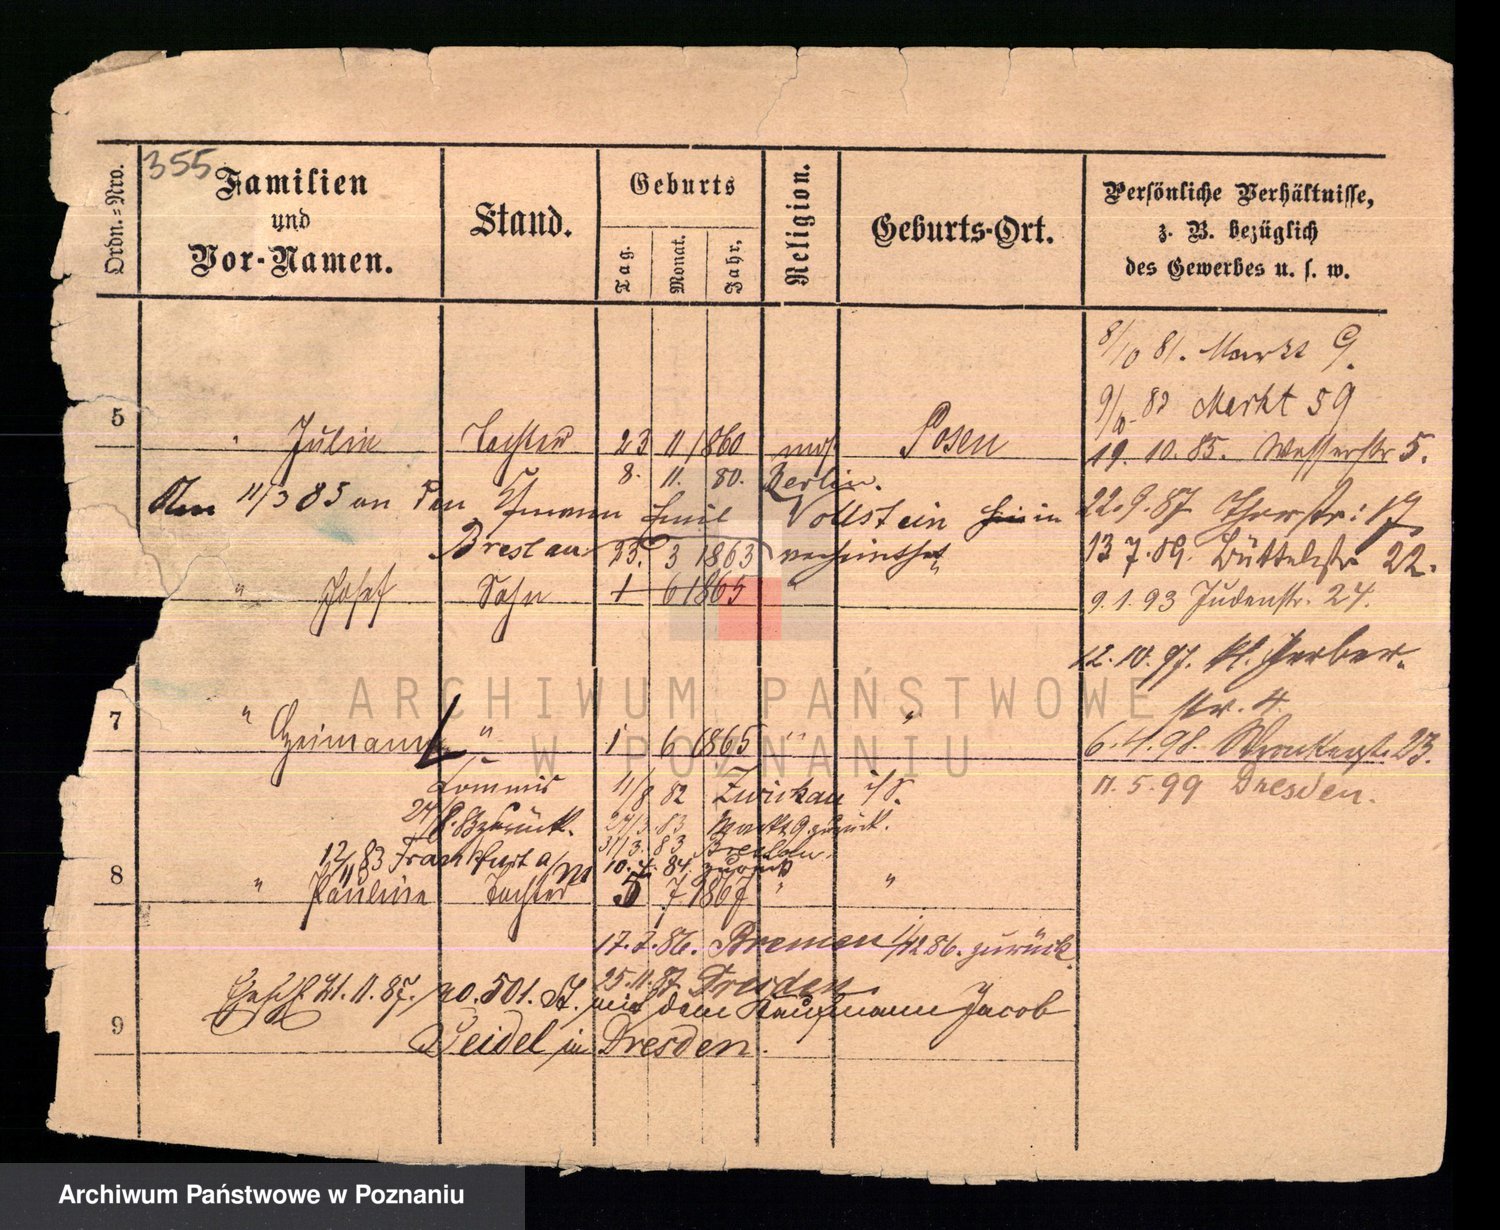 355
Ordn.=Nro.
Familien
und
Vor-Namen.
Stand.
Geburts
Tag.
Monat.
Jahr,
Religion.
Geburts-Ort.
Persönliche Verhältnisse,
z. B. bezüglich
des Gewerbes u. s. w.
8/10 81. Markt 9.
9/10 82 Markt 59
5 " Julie Tochter 23 11 1860 mos Posen
19. 10. 85. Wasserstr 5.
8. 11. 80. Berlin.
Am 11/3 85 an den Emil Vollstein in
22. 9. 87 17
Breslau 25. 3 1863 verheirathet
13 7. 89. Büttelstr 22.
" Josef Sohn 1 6 1865 "
9. 1. 93 Judenstr. 24.
12. 10. 97. kl. Gerber-
str. 4.
7 " Heimann " 1 6 1865 " "
6. 4. 98. 23.
Commis 11/8 82 Zwickau i/S.
11. 5. 99 Dresden.
zurück. 27/3 83 Markt 9 zurück.
31/3. 83 Breslau.
12/11 83 Frankfurt a/M 10. 4. 84. zurück
8 " Pauline Tochter 5 7 1867 " "
17. 2. 86. Bremen 1/12 86. zurück.
25. 11. 87. Dresden
Geschl. 21. 11. 87. no. 501. St. mit dem Kaufmann Jacob
9 Seidel in Dresden.
ARCHIWUM PAŃSTWOWE
W POZNANIU
Archiwum Państwowe w Poznaniu